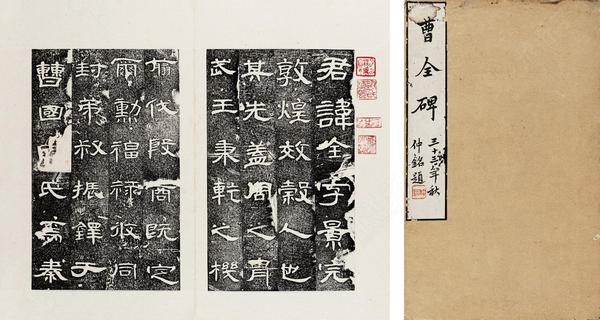 君諱全字景完
敦煌效穀人也
其先蓋周之胄
武王秉乾之機
翦伐殷商既定
爾勳福祿攸同
封弟叔振鐸于
曹國因氏焉秦
曹全碑
三十三年秋
仲銘題